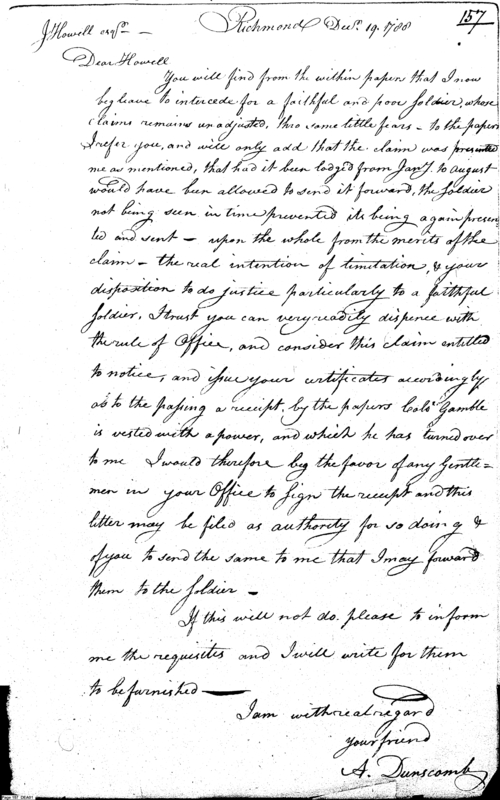 157
J Howell esqr. — Richmond Decr. 19. 1788
Dear Howell
You will find from the within papers that I now
beg leave to intercede for a faithful and poor Soldier, whose
claims remains unadjusted, thro some little fears — to the papers
I refer you, and will only add that the claim was presented
me as mentioned, that had it been lodged from Jany. to august
would have been allowed to send it forward, the Soldier
not being seen in time prevented its being again presen
ted and sent — upon the whole from the merits of the
claim — the real intention of limitation, & your
disposition to do justice particularly to a faithful
Soldier, I trust you can very readily dispence with
the rule of Office, and consider this claim entitled
to notice, and issue your certificates accordingly
as to the passing a receipt, by the papers Colo. Gamble
is vested with a power, and which he has turned over
to me I would therefore beg the favor of any Gentle=
men in your Office to sign the receipt and this
letter may be filed as authority for so doing &
of you to send the same to me that I may forward
them to the Soldier —
If this will not do. please to inform
me the requisites and I will write for them
to be furnished —
I am with real regard
your friend
A. Dunscomb